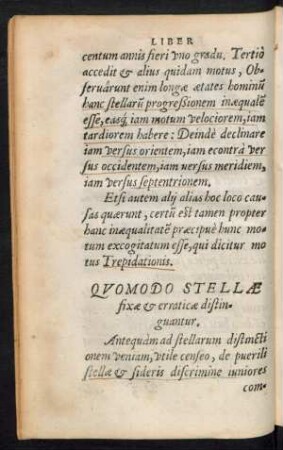 LIBER
centum annis fieri vno gradu. Tertiò
accedit & alius quidam motus, Ob-
seruârunt enim longæ ætates hominũ
hanc stellarũ progressionem inæqualẽ
esse, easq́; iam motum velociorem, iam
tardiorem habere: Deindè declinare
iam versus orientem, iam econtrà ver
sus occidentem, iam uersus meridiem,
iam versus septentrionem.
Etsi autem alij alias hoc loco cau-
sas quærunt, certũ est tamen propter
hanc inæqualitatẽ præcipuè hunc mo-
tum excogitatum esse, qui dicitur mo
tus Trepidationis.
QVOMODO STELLÆ
fixæ & erraticæ distin-
guantur.
Antequàm ad stellarum distincti
onem veniam, vtile censeo, de puerili
stellæ & sideris discrimine iuniores
com-